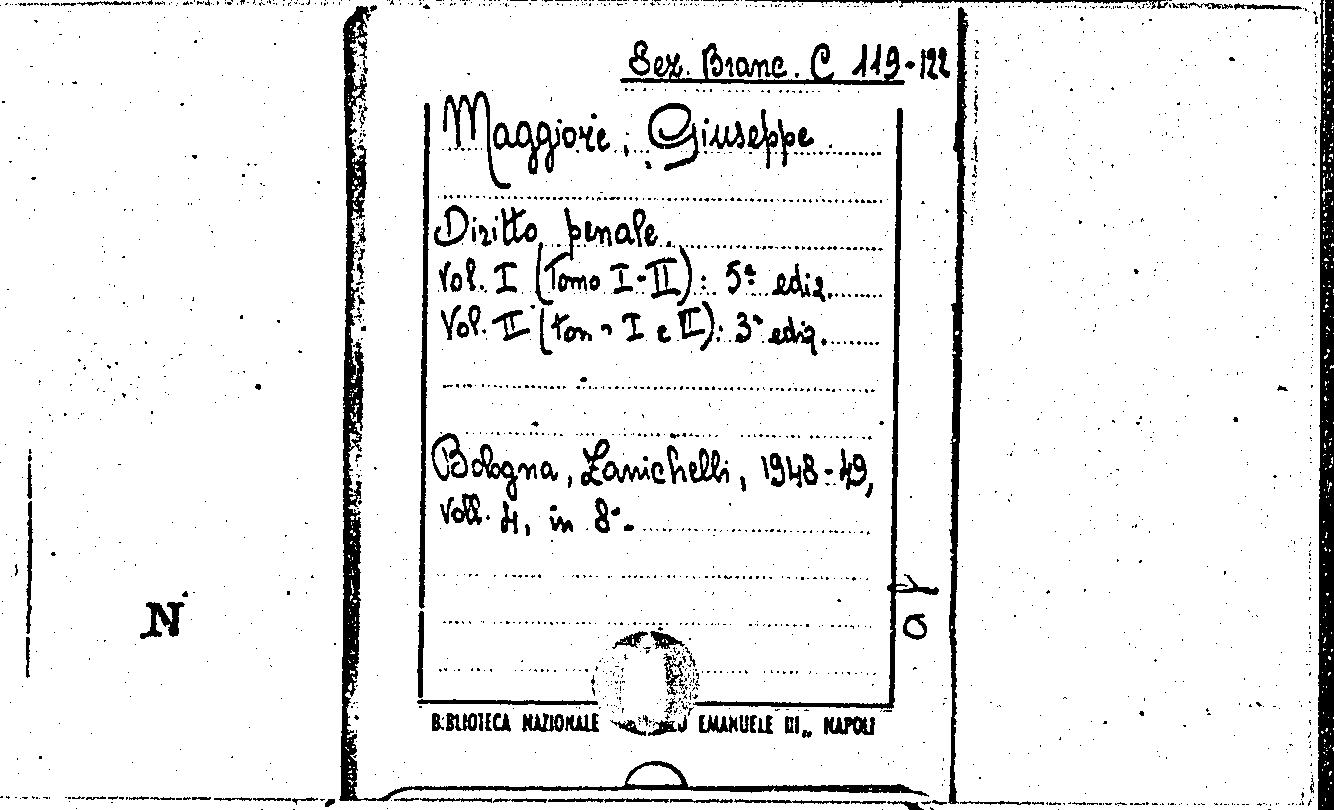 Sez. Branc. C 119-122
Maggiore, Giuseppe.
Diritto penale.
Vol. I (Tomo I-II): 5ª ediz.
Vol. II (tom. I e II): 3ª ediz.
Bologna, Zanichelli, 1948-49,
voll. 4, in 8º.
N
BIBLIOTECA NAZIONALE EMANUELE III„ NAPOLI